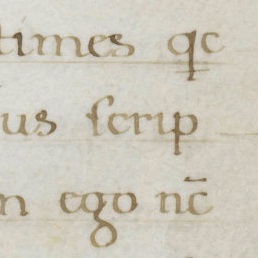 times qc
us scrip
n ego nc̄